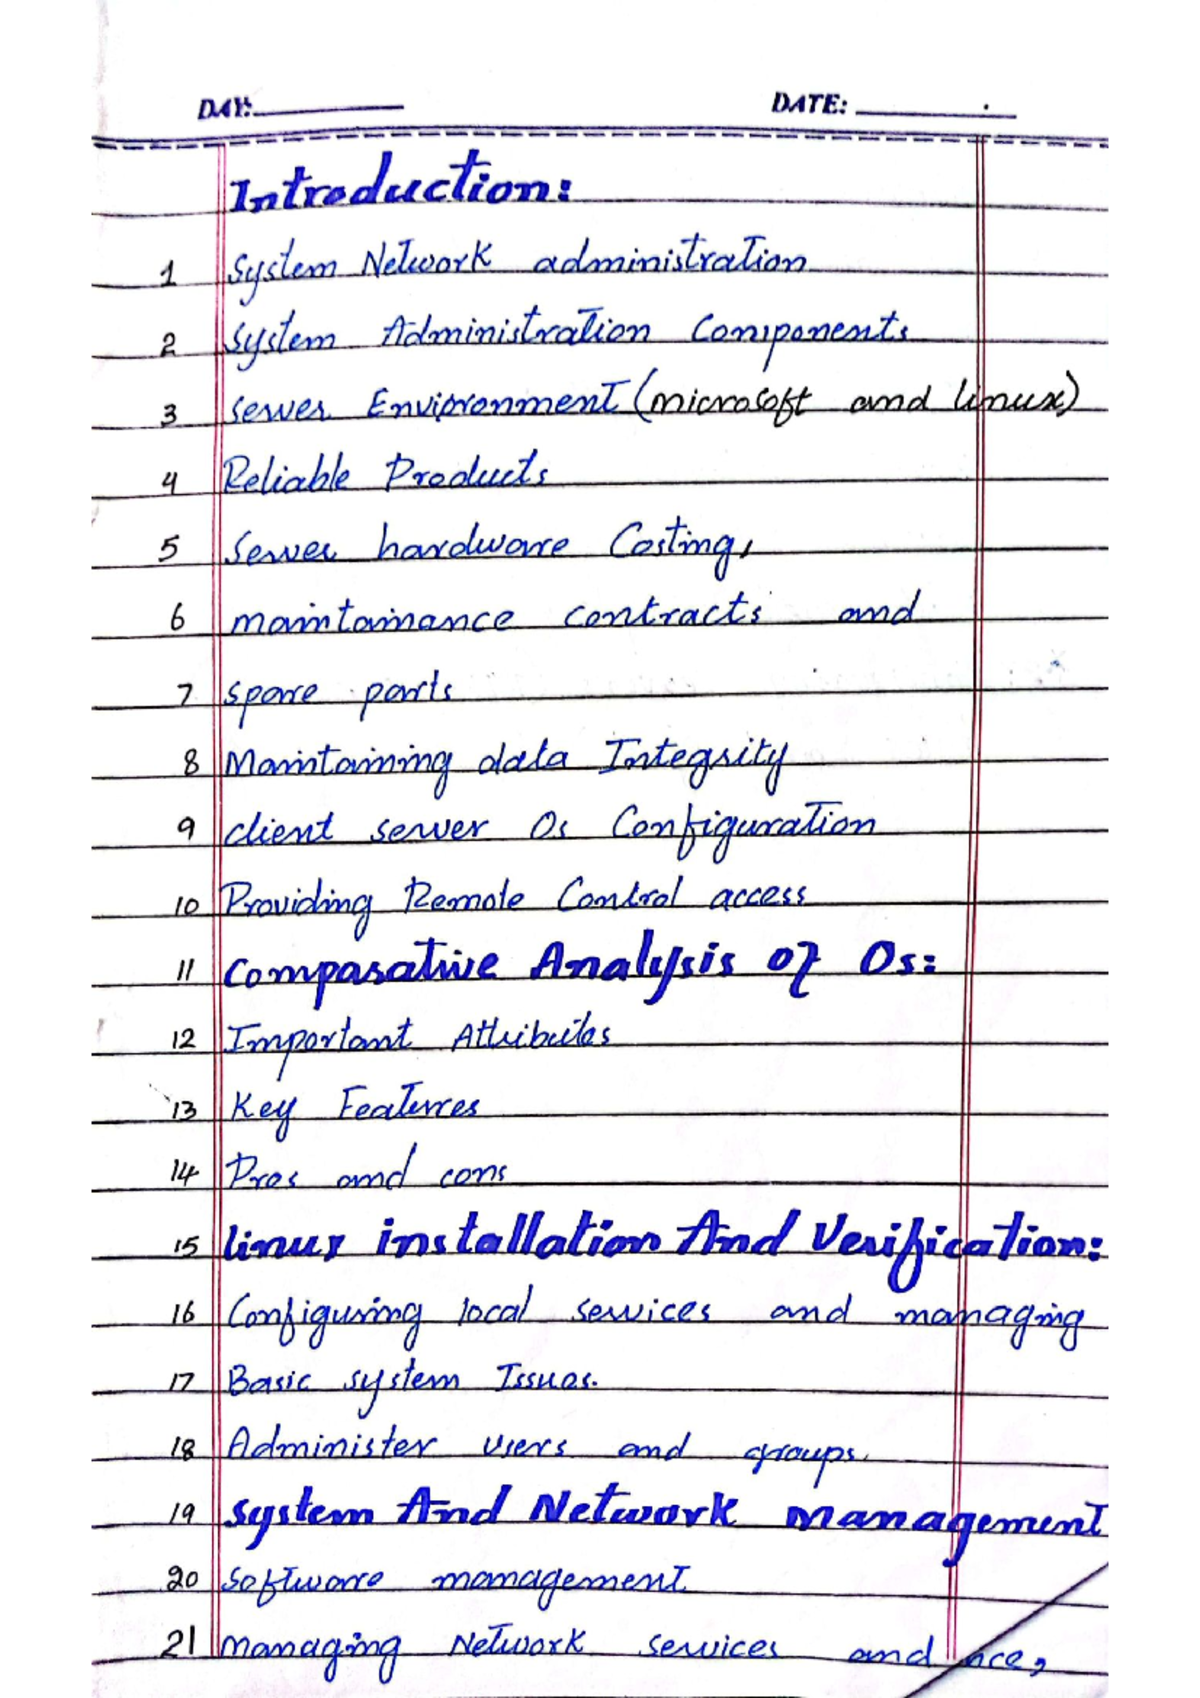 DAY: DATE:
Introduction:
1 System Network administration
2 System Administration Components
3 server Enviporonment (microsoft and linux)
4 Reliable Products
5 Server hardware Costing,
6 maintainance contracts and
7 spare parts
8 Maintaining data Integrity
9 client server Os Configuration
10 Providing Remote Control access
11 Comparative Analysis of Os:
12 Important Attributes
13 Key Features
14 Pros and cons
15 linux installation And Verification:
16 Configuring local services and managing
17 Basic system Issues.
18 Administer users and groups.
19 System And Network Management
20 Software management
21 Managing Network services and